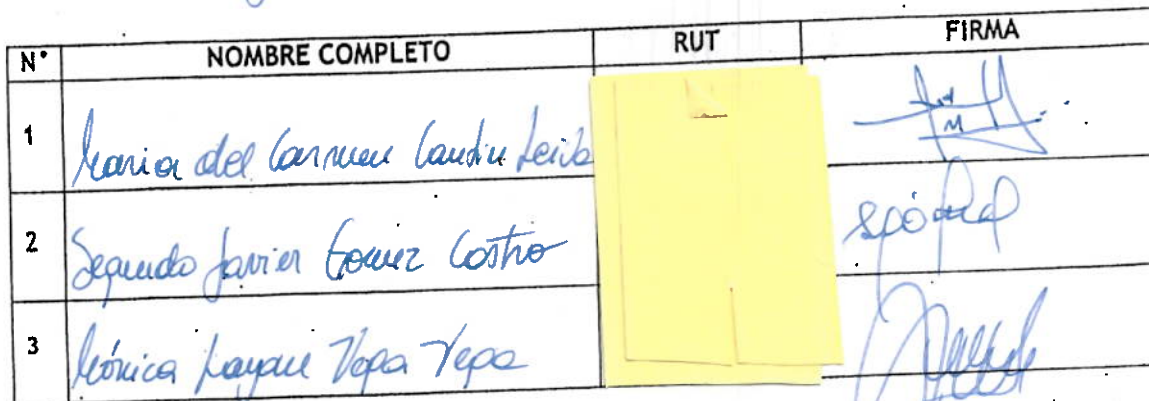 N° NOMBRE COMPLETO RUT FIRMA
1 Maria del Carmen Leiva
2 Segundo Javier Gomez Castro
3 Mónica Vega Vega